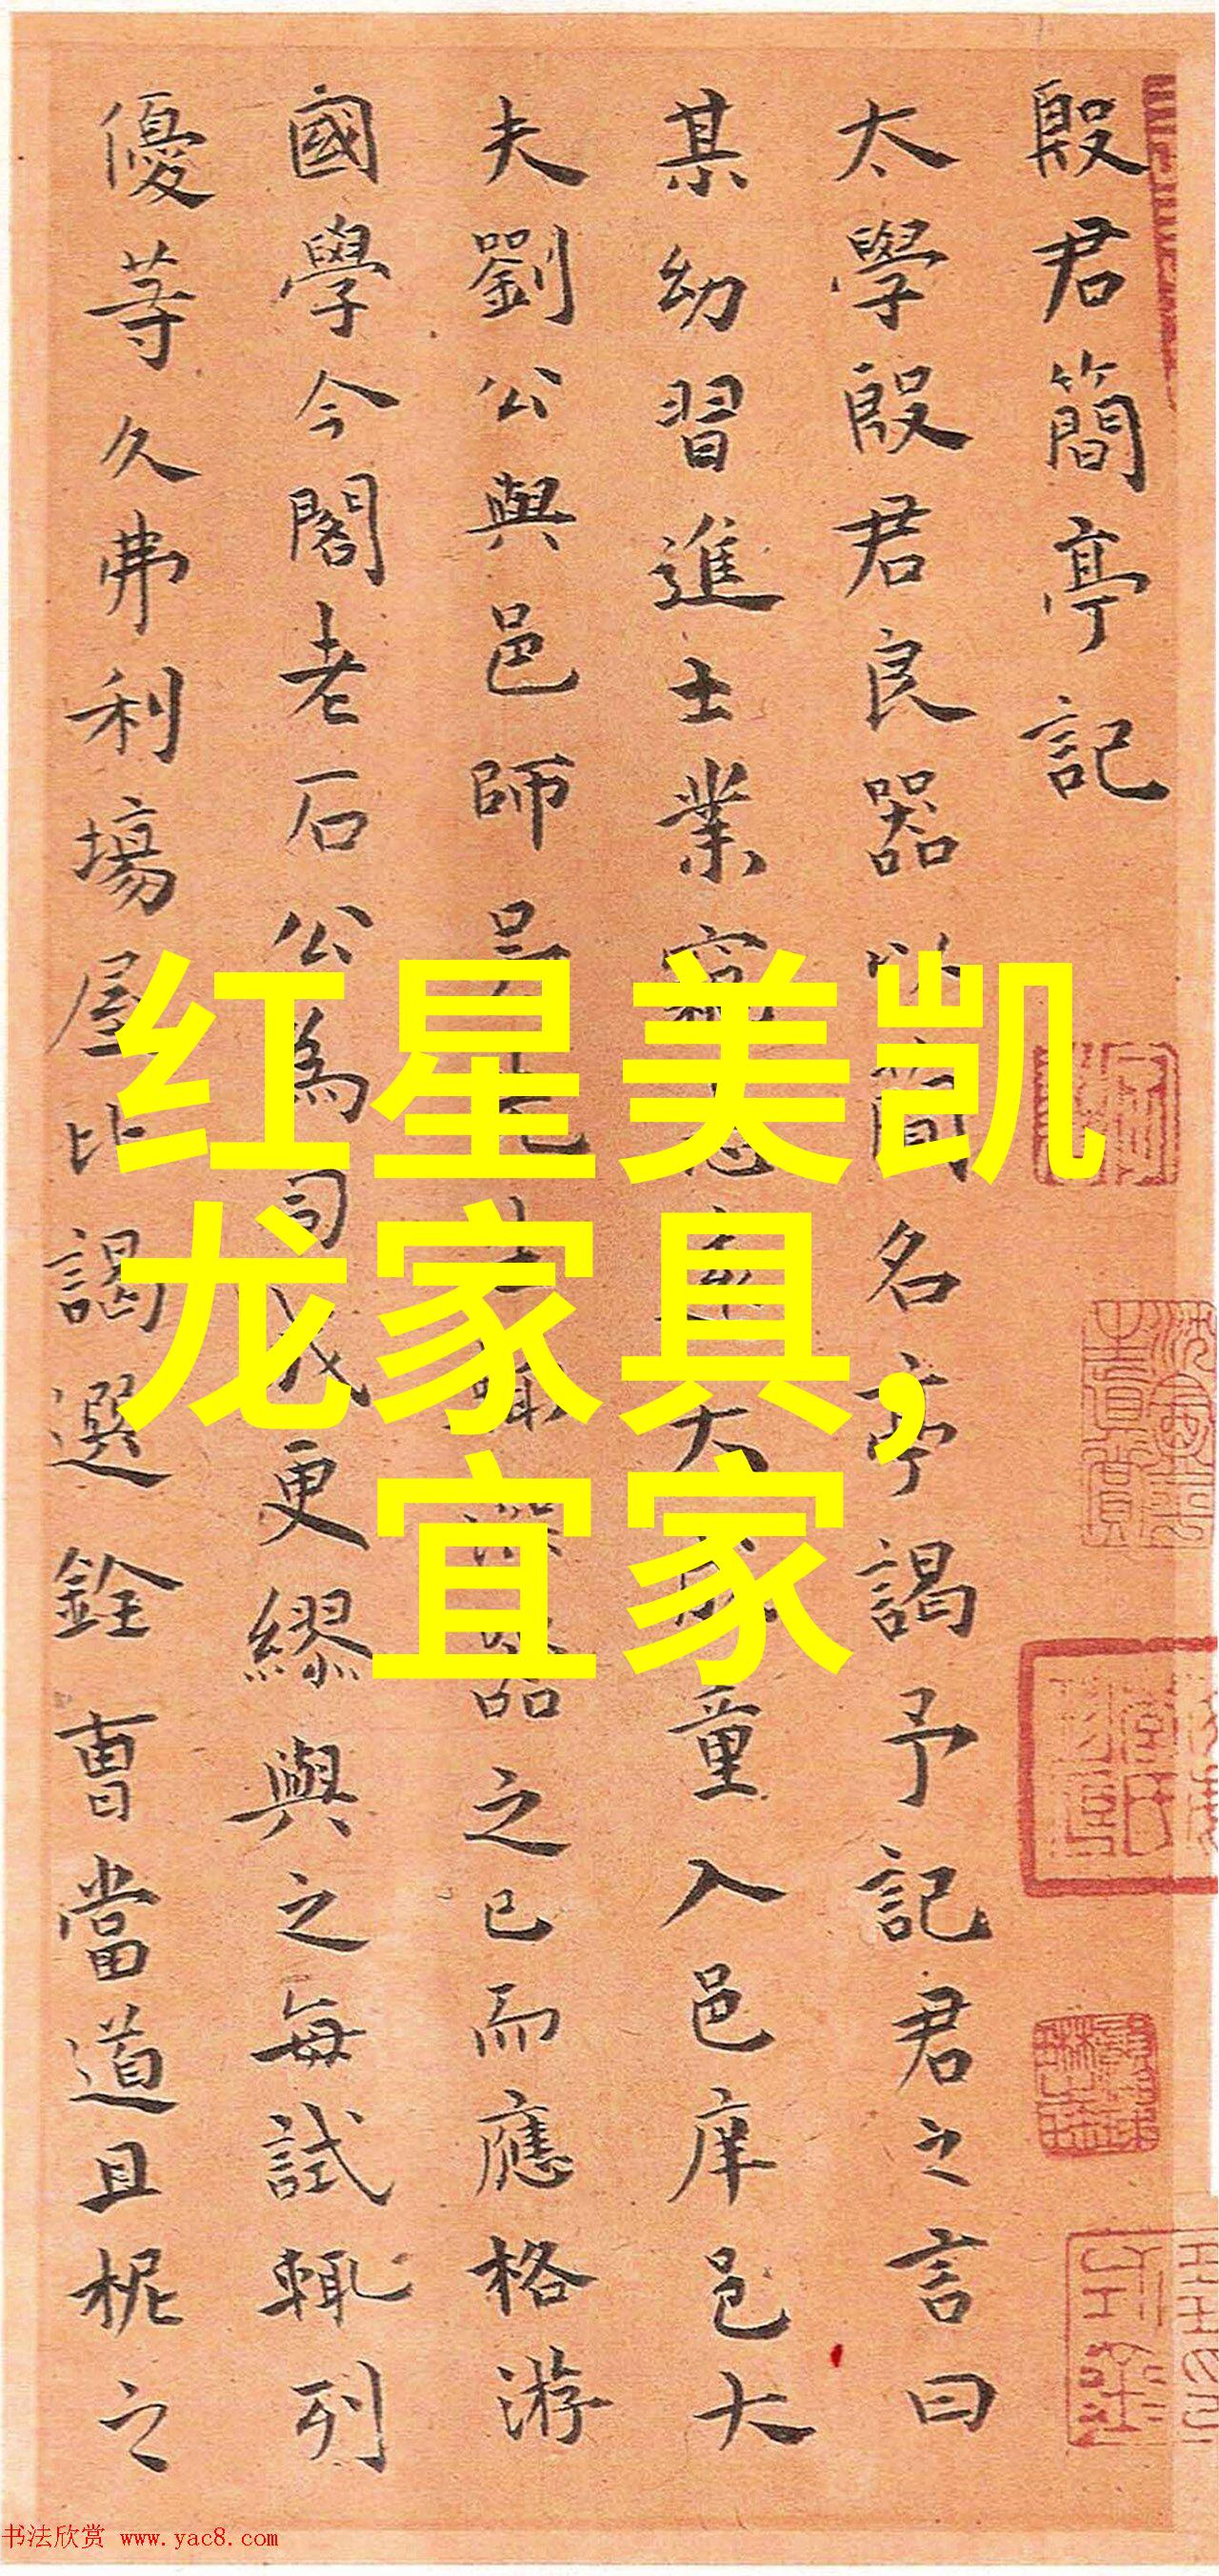 殷君簡亭記
太學殷君良器以簡名亭謁予記君之言曰
某幼習進士業童入邑庠邑大
夫劉公與邑師之已而應格游
國學今閣老石公為司成更繆與之每試輒列
優等久弗利場屋比謁選銓曹當道且柅之
红星美凯
龙家具,
宜家
书法欣赏 www.yac8.com